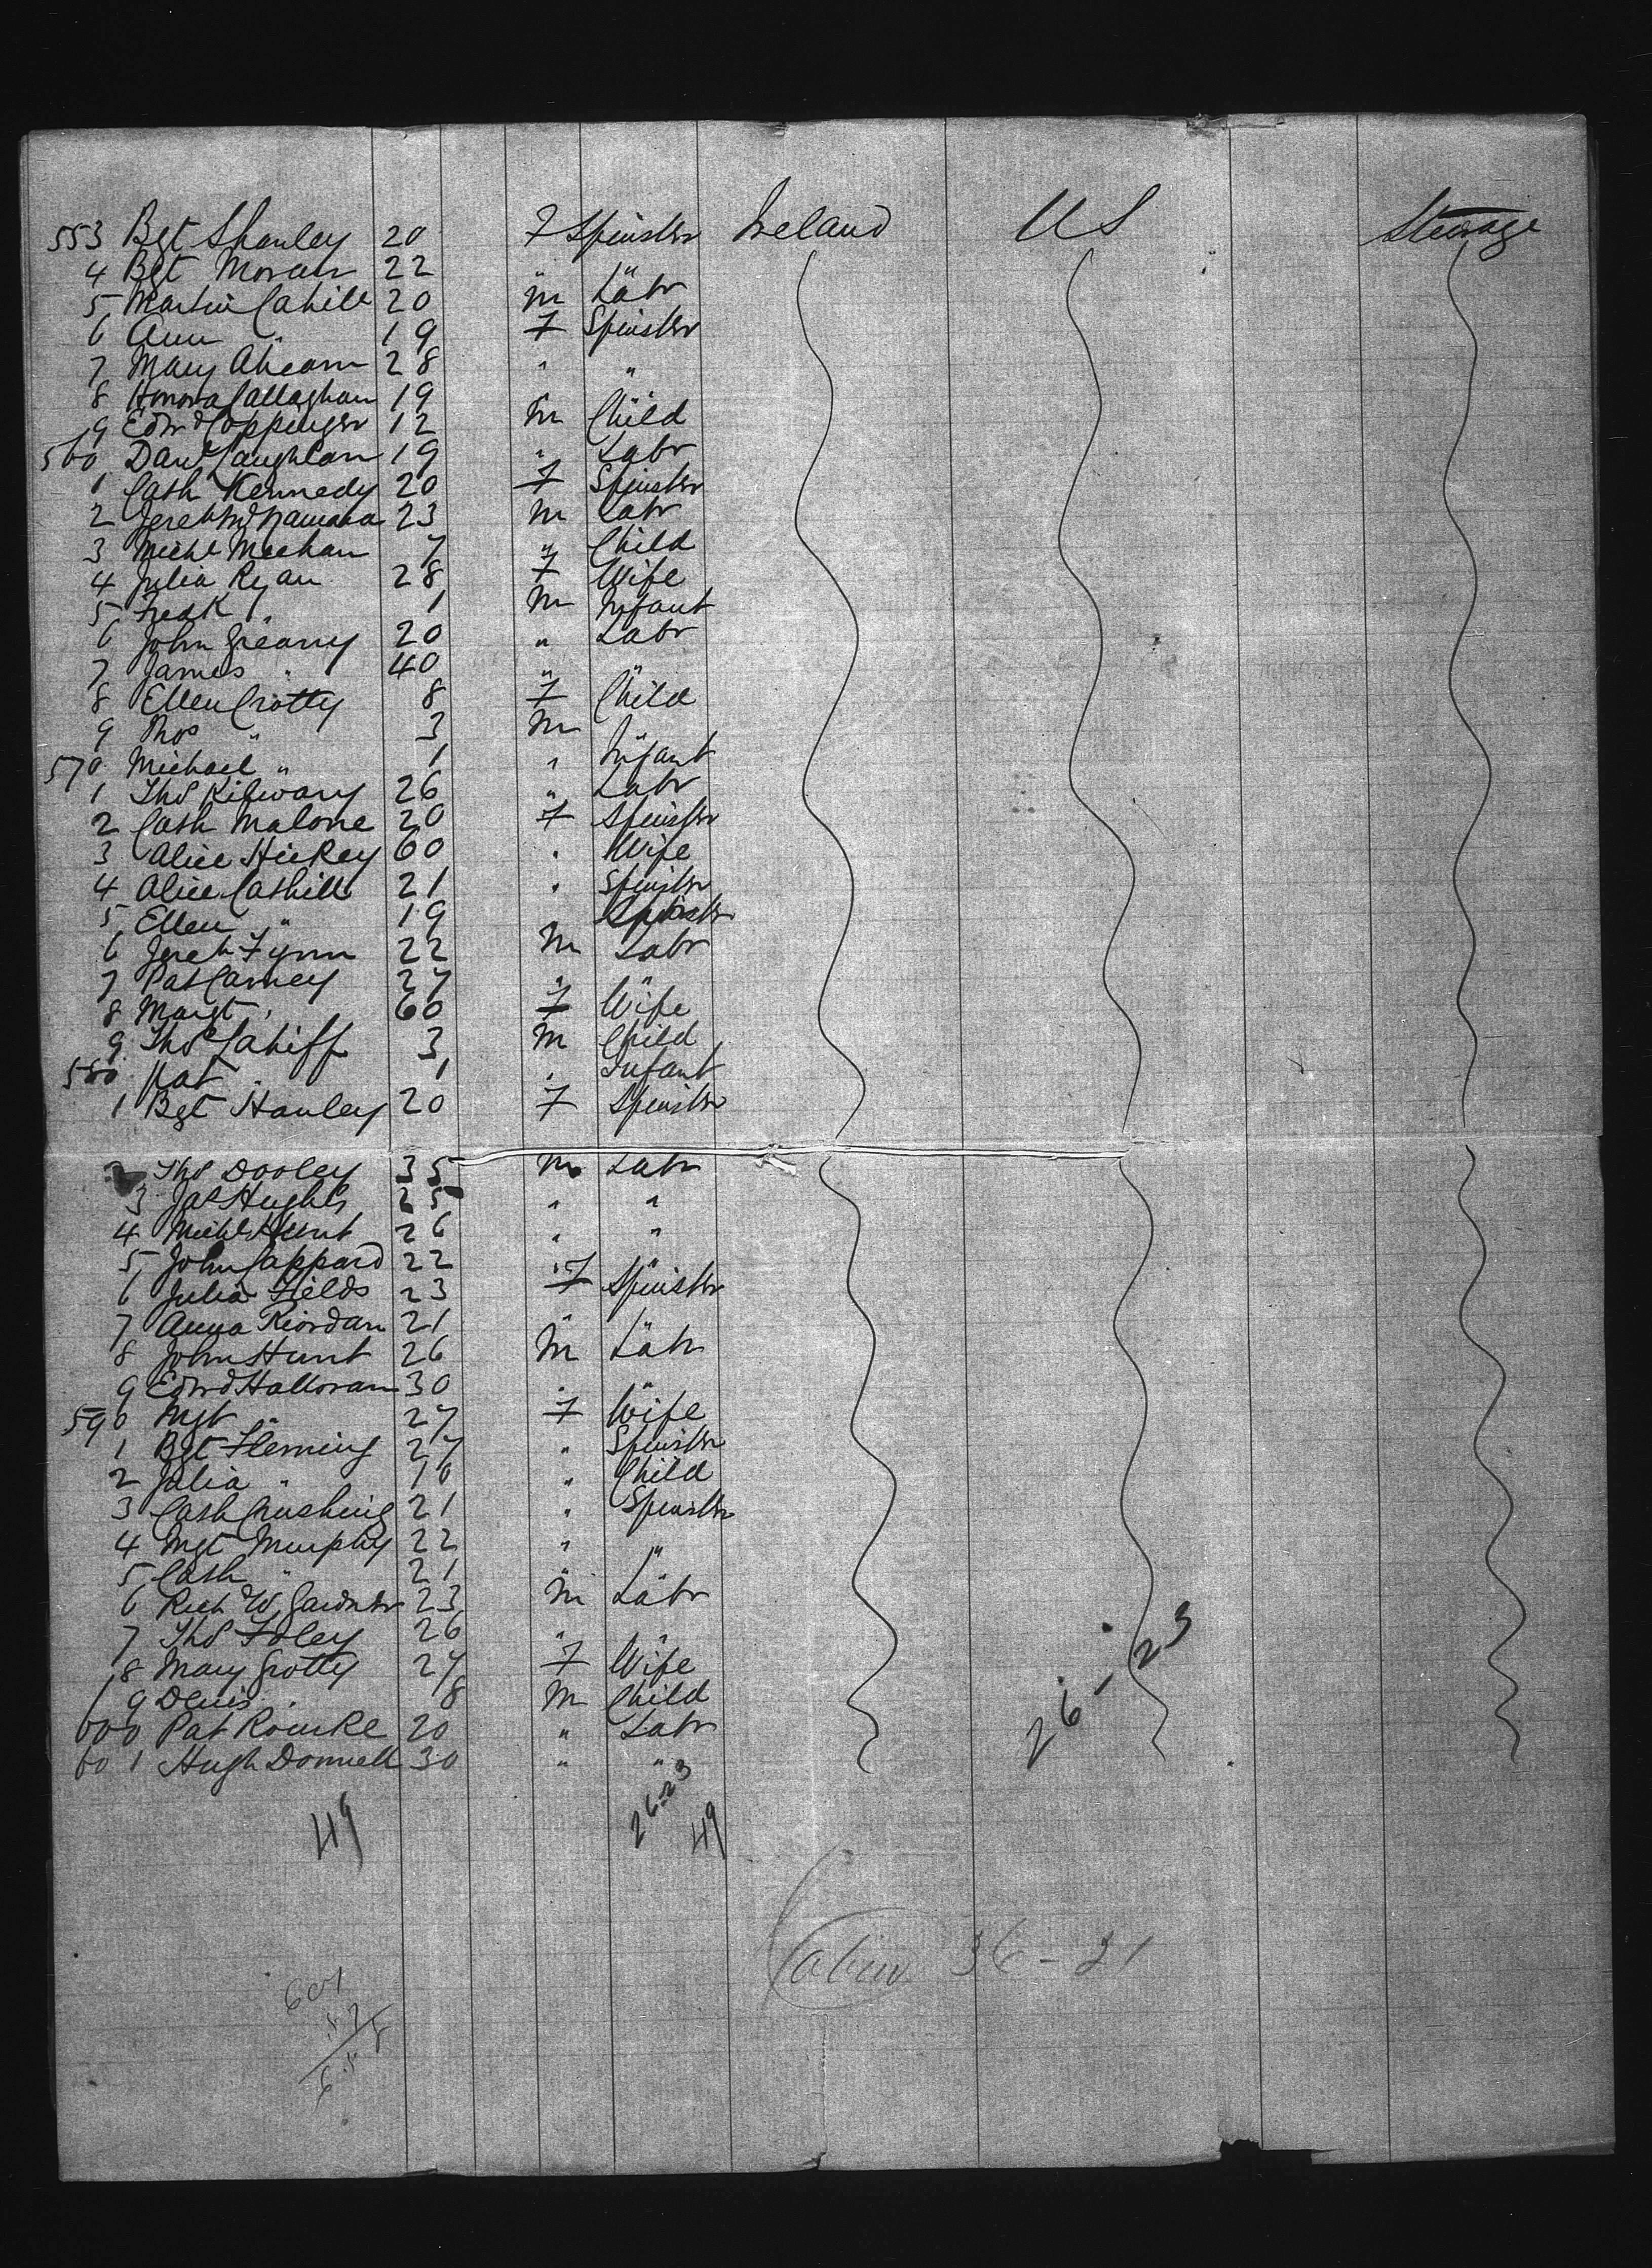 553 Bgt Shanley 20 F Spinster Ireland US Steerage
4 Bgt Moran 22 " "
5 Martin Cahill 20 m Labr
6 Ann " 19 F Spinster
7 Mary Ahearn 28 " "
8 Honora Callaghan 19
9 Edwd Coppinger 12 m Child
560 Danl Caughlan 19 " Labr
1 Cath Kennedy 20 F Spinster
2 Jereh McNamara 23 m Labr
3 Michl Meehan 7 " Child
4 Julia Ryan 28 F Wife
5 Fredk " 1 m Infant
6 John Greany 20 " Labr
7 James " 40 " "
8 Ellen Crotty 8 F Child
9 Thos " 3 m
570 Michael " 1 " Infant
1 Thos 26 " Labr
2 Cath Malone 20 F Spinster
3 Alice Hickey 60 " Wife
4 Alice Cashill 21 " Spinster
5 Ellen " 19 Spinster
6 Jereh Flynn 22 m Labr
7 Pat Carney 27 " "
8 Margt " 60 F Wife
9 Thos Cahiff 3 m Child
580 Pat " 1 " Infant
1 Bgt Hanley 20 F Spinster
2 Thos Dooley 35 m Labr
3 Jas Hughes 25 " "
4 Michl Hunt 26 " "
5 John Cappard 22 " "
6 Julia Fields 23 F Spinster
7 Anna Riordan 21 " "
8 John Hunt 26 m Labr
9 Edwd Halloran 30 " "
590 Mgt " 27 F Wife
1 Bgt Fleming 27 " Spinster
2 Julia " 10 " Child
3 Cath Crushing 21 " Spinster
4 Mgt Murphy 22 " "
5 Cath " 21 " "
6 Rich W Gardner 23 m Labr
7 Thos Foley 26 " "
8 Mary Crotty 27 F Wife
9 Denis " 8 m Child
600 Pat Rourke 20 " Labr
601 Hugh Donnell 30 " "
26-23
49 26-23 49
Cabin 36-21
601
57
658